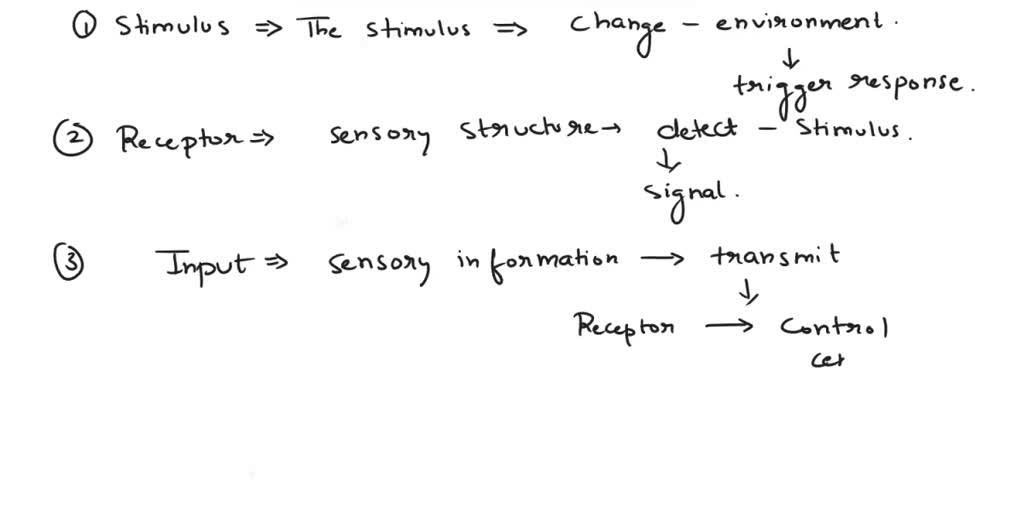 ① Stimulus ⇒ The stimulus ⇒ change - environment.
↓
trigger response.
② Receptor ⇒ sensory structure → detect - stimulus.
↓
signal.
③ Input ⇒ sensory information → transmit
↓
Receptor → control
cen